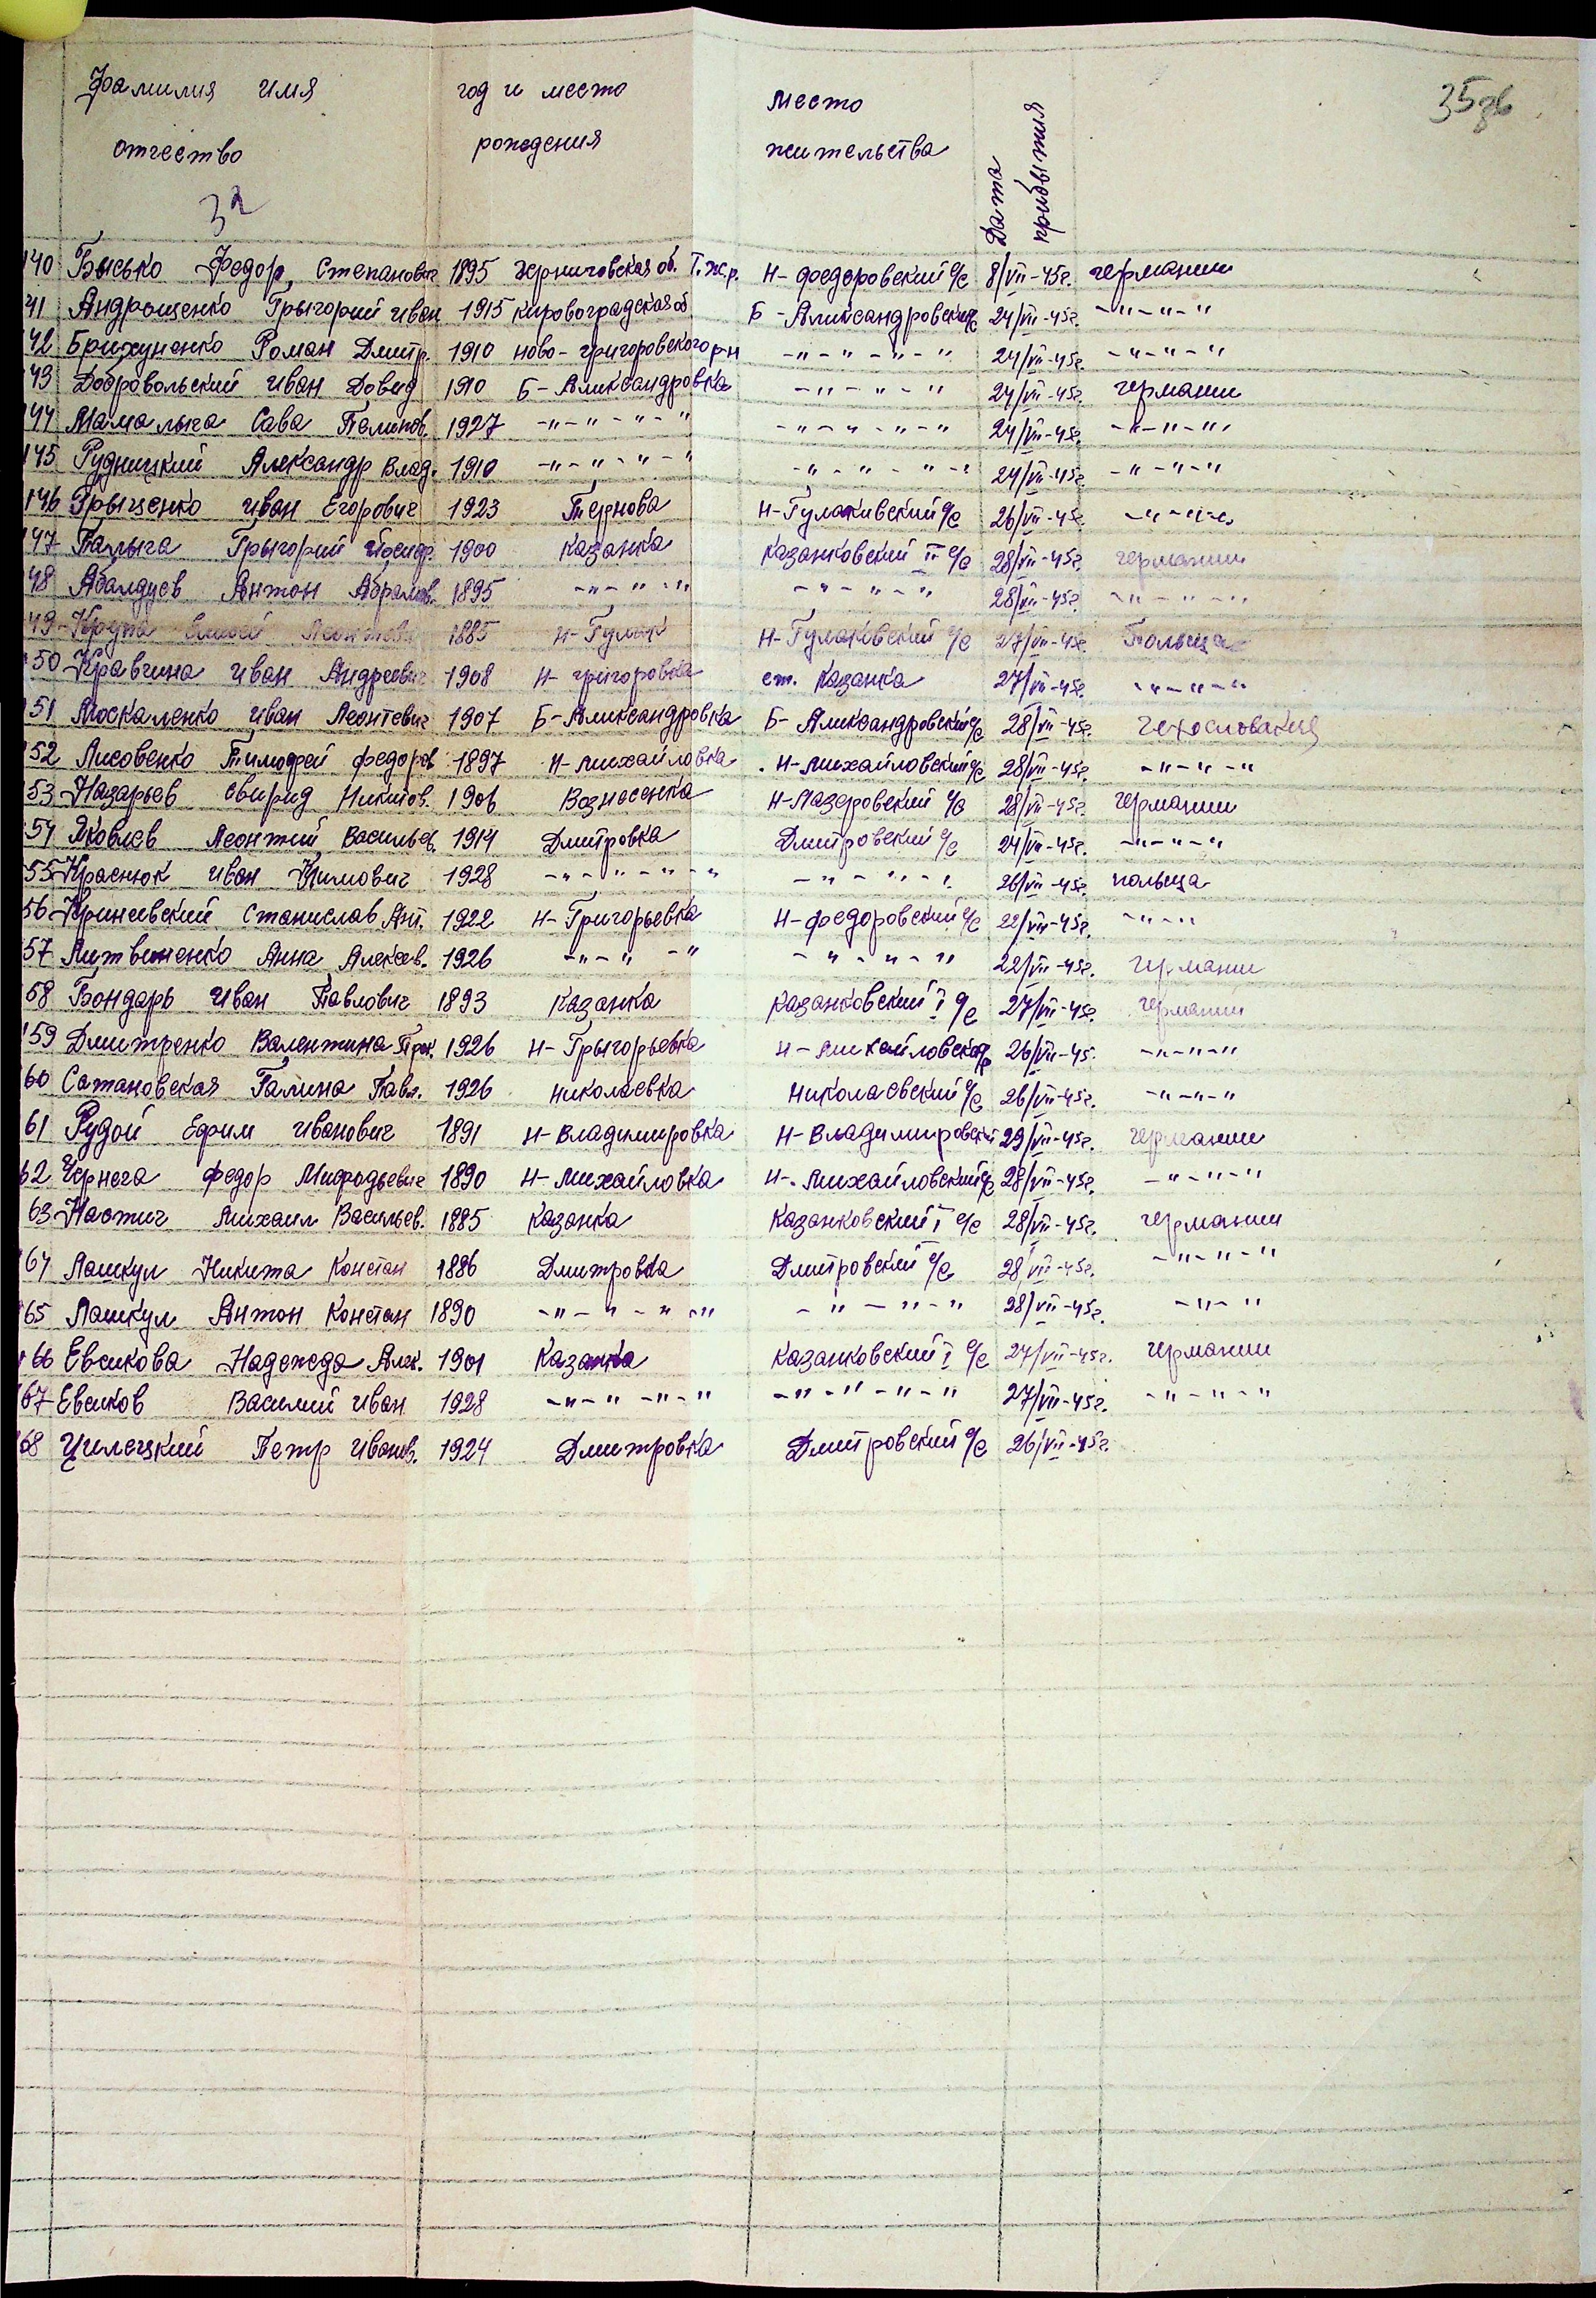 Фамилия имя отчество год и место рождения место жительства Дата прибытия 35
32
140 Бысько Федор, Степанович 1895 Черниговская об. Т.ж.р. Н-Федоровский с/с 8/VII-45г. германии
41 Андрющенко Грыгорий Иван 1915 Кировоградская об Б-Александровский с/с 24/VII-45г. -"-"-"
42 Брижуненко Роман Дмитр. 1910 ново-григоровского р-н -"-"-"-" 24/VII-45г. -"-"-"
43 Добровольский Иван Довид 1910 Б-Александровка -"-"-" 24/VII-45г. германии
144 Мамалыга Сава Пелипов. 1927 -"-"-"-" -"-"-"-" 24/VII-45г. -"-"-"
145 Рудницкий Александр Влад. 1910 -"-"-"-" -"-"-"-" 24/VII-45г. -"-"-"
146 Грыценко Иван Егорович 1923 Тернова Н-Гулакивский с/с 26/VII-45г. -"-"-"
147 Палыга Грыгорий 1900 Казанка Казанковский II с/с 28/VII-45г. германии
48 Абалдуев Антон Абрамов. 1895 -"-"-" -"-"-" 28/VII-45г. -"-"-"
49 Крупа 1885 Н-Гулак Н-Гулаковский с/с 27/VII-45г. Польща
50 Кравчина Иван Андреевич 1908 Н-григоровка ст. Казанка 27/VII-45г. -"-"-"
151 Москаленко Иван Леонтевич 1907 Б-Александровка Б-Александровский с/с 28/VII-45г. Чехословакия
152 Лисовенко Тимофей Федоров 1897 Н-Михайловка Н-Михайловский с/с 28/VII-45г. -"-"-"
53 Назарьев Свирид Никитов. 1906 Вознесенка Н-Лазеровский с/с 28/VII-45г. германии
54 Яковлев Леонтий Васильев. 1914 Дмитровка Дмитровский с/с 24/VII-45г. -"-"-"
55 Краснюк Иван Климович 1928 -"-"-"-" -"-"-" 26/VII-45г. польща
56 Криневский Станислав Ант. 1922 Н-Григорьевка Н-Федоровский с/с 22/VII-45г. -"-"
57 Литвененко Анна Алексев. 1926 -"-"-" -"-"-" 22/VII-45г. германии
58 Бондарь Иван Павлович 1893 Казанка Казанковский I с/с 27/VII-45г. германии
159 Дмитренко Валентина Прок. 1926 Н-Грыгорьевка Н-Михайловская 26/VII-45. -"-"-"
60 Сатановская Галина Павл. 1926 николаевка Николаевский с/с 26/VII-45г. -"-"-"
61 Рудой Ефим Иванович 1891 Н-Владимировка Н-Владимировский 29/VII-45г. германии
62 Чернега Федор Мифодьевич 1890 Н-Михайловка Н-Михайловский с/с 28/VII-45г. -"-"-"
63 Настич Михаил Васильев. 1885 Казанка Казанковский I с/с 28/VII-45г. германии
64 Лашкул Никита Констан 1886 Дмитровка Дмитровский с/с 28/VII-45г. -"-"-"
65 Лашкул Антон Констан 1890 -"-"-"-" -"-"-" 28/VII-45г. -"-"
166 Евсикова Надежда Алек. 1901 Казанка Казанковский I с/с 27/VII-45г. германии
67 Евсиков Василий Иван 1928 -"-"-"-" -"-"-"-" 27/VII-45г. -"-"-"
168 Цилецкий Петр Иванов. 1924 Дмитровка Дмитровский с/с 26/VII-45г.